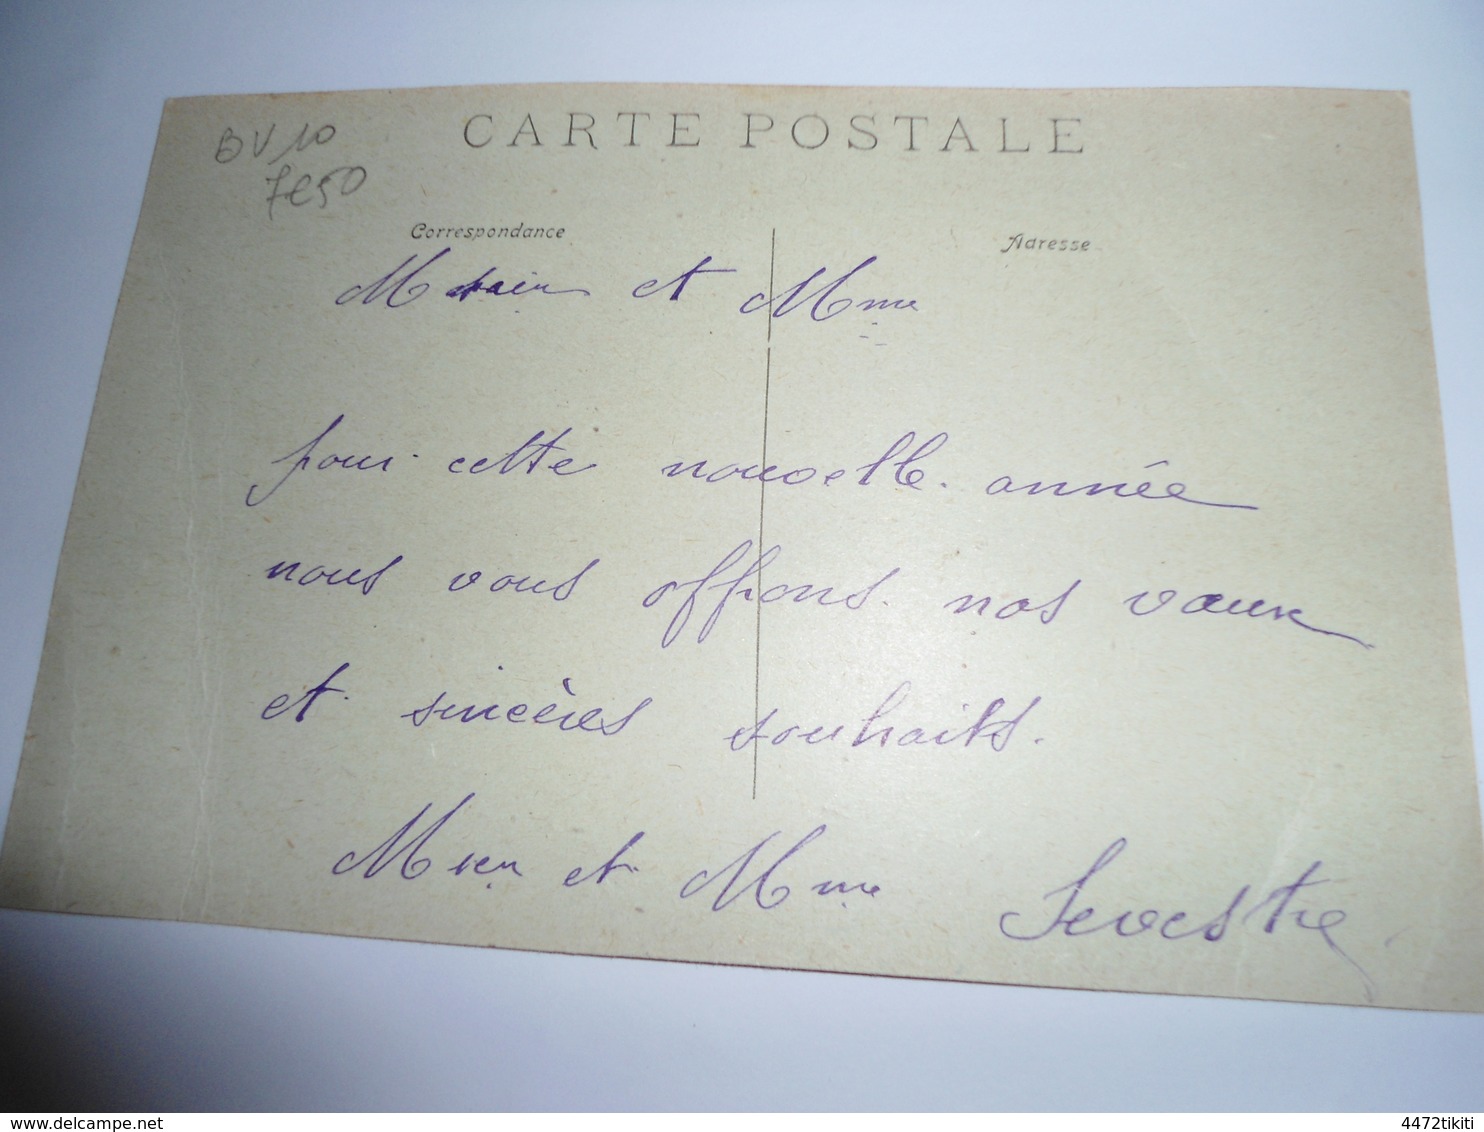 BV10
7e50
CARTE POSTALE
Correspondance
Adresse
M et Mme
pour cette nouvelle année
nous vous offrons nos vœux
et sincères souhaits.
Msieu et Mme Sevestre
delcampe.net
4472tikiti